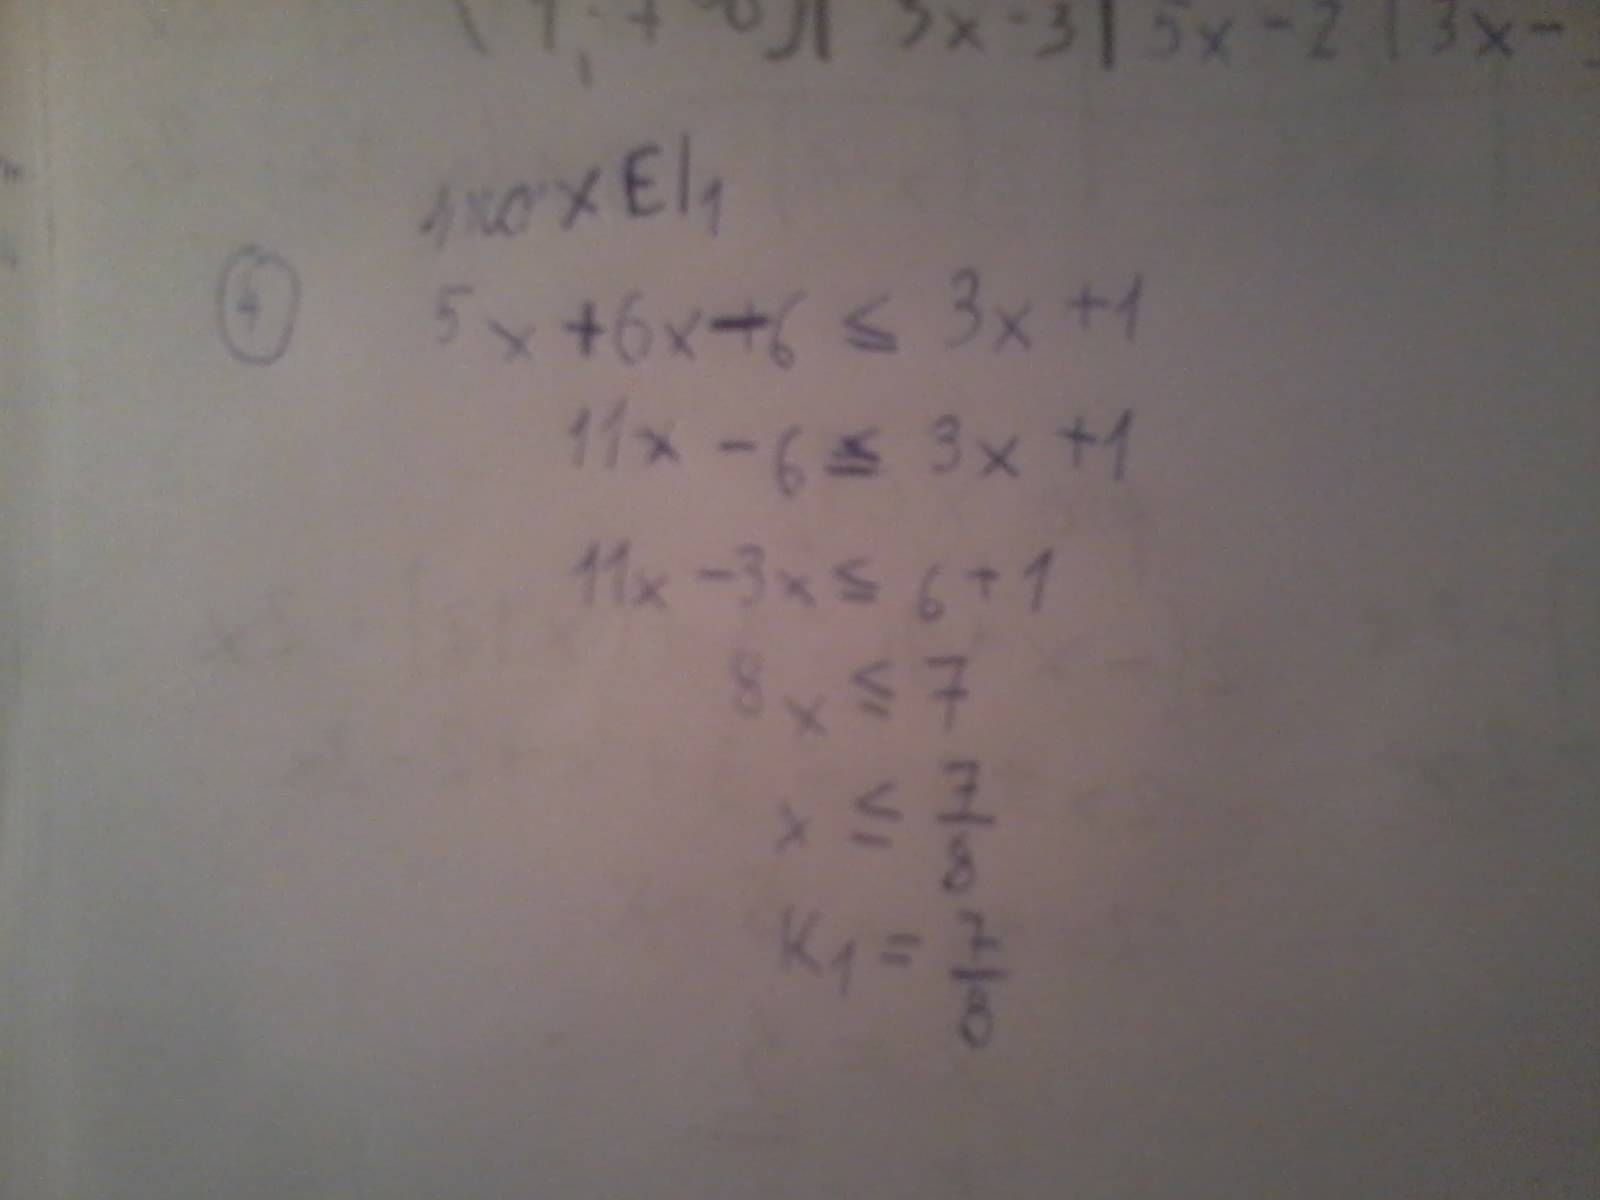 3x-3 | 5x-2 | 3x-
x E I1
5x +6x-6 ≤ 3x +1
11x - 6 ≤ 3x +1
11x -3x ≤ 6+1
8x ≤ 7
x ≤ 7/8
K1 = 7/8